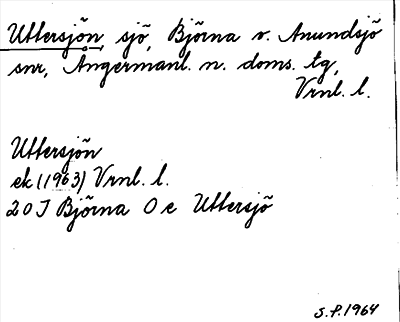 Uttersjön, sjö, Björna o. Anundsjö
snr, Ångermanl. n. doms. tg,
Vrnl. l.
Uttersjön
ek (1963) Vrnl. l.
20 J Björna O c Uttersjö
S.P. 1964